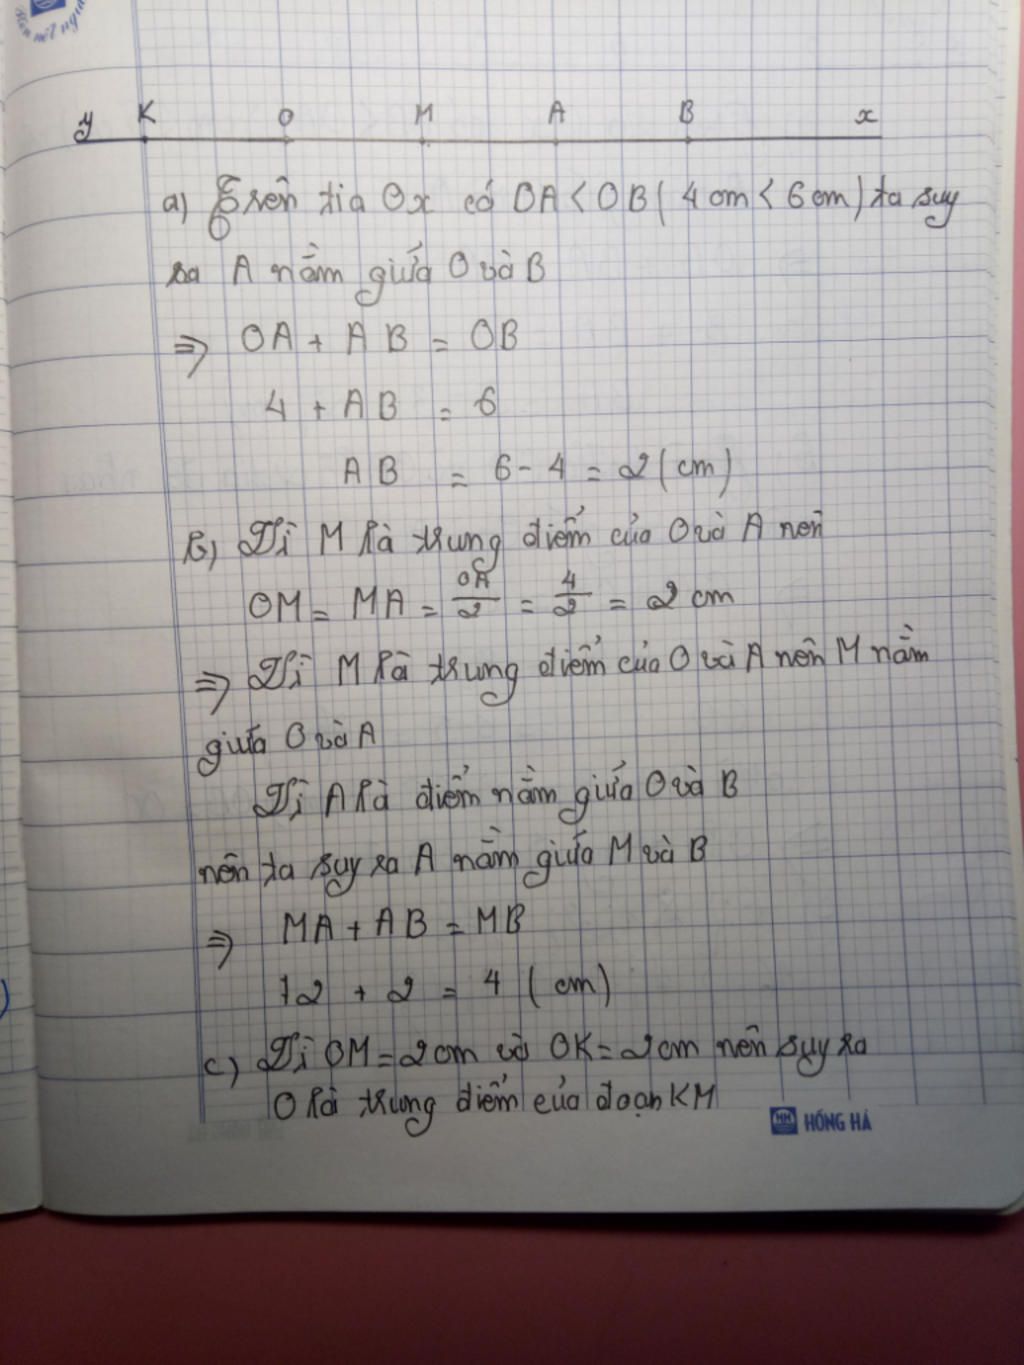 Bền một ngư
y K O M A B x
a) Trên tia Ox có OA < OB ( 4 cm < 6 cm ) ta suy
ra A nằm giữa O và B
⇒ OA + AB = OB
4 + AB = 6
AB = 6 - 4 = 2 ( cm )
b) Vì M là trung điểm của O và A nên
OM = MA = OA/2 = 4/2 = 2 cm
⇒ Vì M là trung điểm của O và A nên M nằm
giữa O và A
Vì A là điểm nằm giữa O và B
nên ta suy ra A nằm giữa M và B
⇒ MA + AB = MB
2 + 2 = 4 ( cm )
c) Vì OM = 2 cm và OK = 2 cm nên suy ra
O là trung điểm của đoạn KM
HH HỒNG HÀ